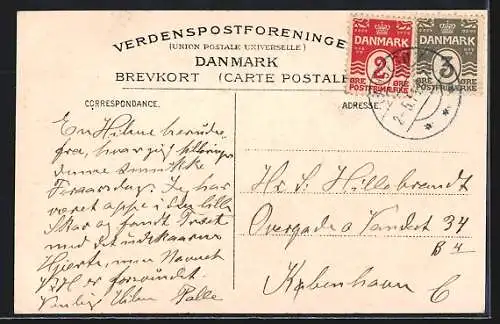 VERDENSPOSTFORENINGEN
(UNION POSTALE UNIVERSELLE)
DANMARK
BREVKORT (CARTE POSTALE
DANMARK
2
ØRE ØRE
POSTFRIMÆRKE
DANMARK
3
ØRE ØRE
POSTFRIMÆRKE
CORRESPONDANCE.
ADRESSE.
En Hilsen herude
fra, hvor jeg tilbringer
denne smukke
Foraarsdag. Jeg har
været oppe i den lille
Skov og fandt Træet
med det udskaarne
Hjerte, men Navnet
er forsvundet.
Venlig Hilsen Palle
Hr. S. Hillebrandt
Overgade o Vandet 34
B 4
København C